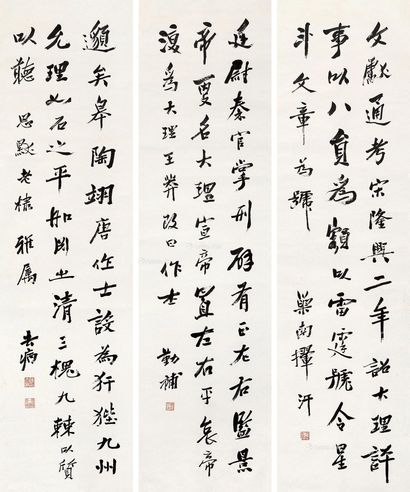 文獻通考宋隆興二年詔大理評
事以八員為額以雷霆號令星
斗文章為號 南揮汗
廷尉秦官掌刑辟有正左右監景
帝更名大理宣帝置左右平哀帝
復為大理王莽改曰作士 勤補
邈矣皋陶翊唐作士設為犴狴九州
允理如石之平如淵之清三槐九棘以質
以聽 思默老棣雅屬 去病